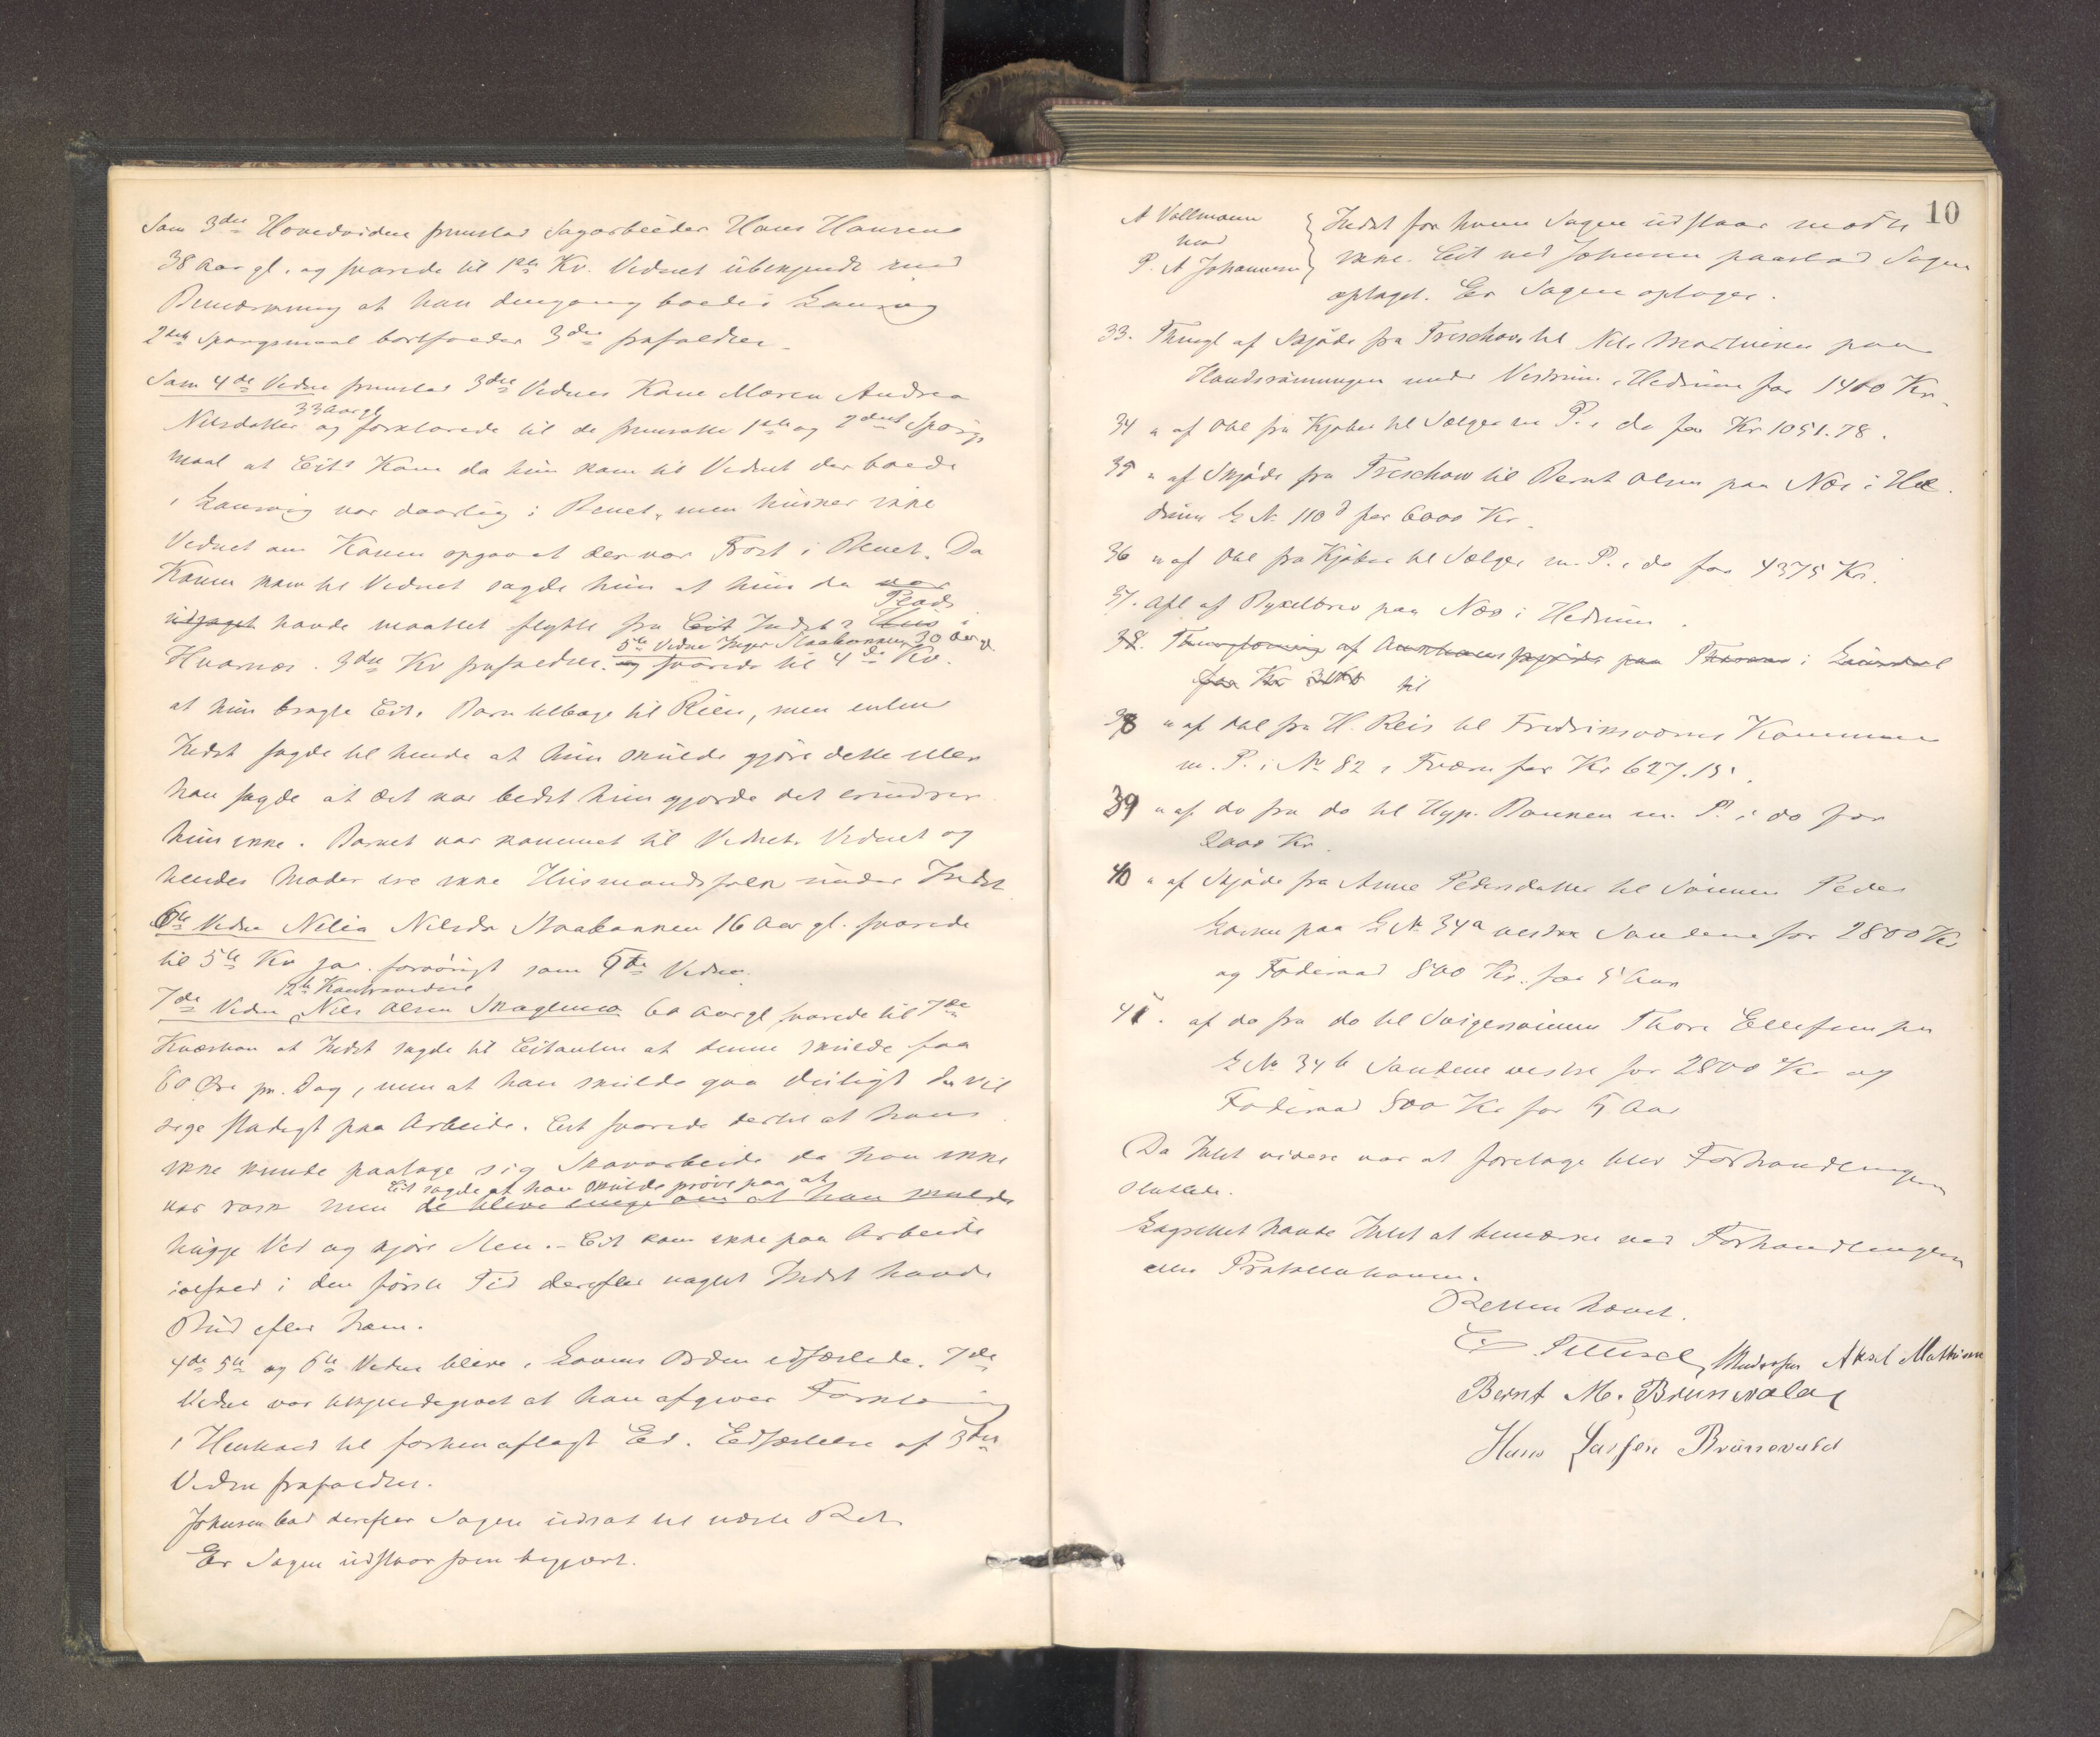 Som 3die Hovedvidne fremstod Sagarbeider Hans Hansen
38 Aar gl. og svarede til 1ste Kv. Vidnet ubekjendt med
Bemærkning at han dengang boede i Laurvig
2det Spørgsmaal bortfalder 3die frafaldtes
Som 4de Vidne fremstod 3die Vidnes Kone Maren Andrea
33 Aar gl
Nilsdatter og forklarede til de fremsatte 1ste og 2det Spørgs
maal at Cits Kone da hun kom til Vidnet der boede
i Laurvig var daarlig i Benet, men husker ikke
Vidnet om Konen opgav at der var Frost i Benet. Da
Konen kom til Vidnet sagde hun at hun da var
Plads
udjaget havde maattet flytte fra Cit Indst Hus i
5te Vidne Inger Skaabakken 30 Aar gl
Hvarnes. 3die Kv frafaldtes. og svarede til 4de Kv.
at hun bragte Cits Barn tilbage til Riis, men enten
Indst sagde til hende at hun skulde gjøre dette eller
han sagde at det var bedst hun gjorde det erindrer
hun ikke. Barnet var kommet til Vidnet. Vidnet og
hendes Moder ere ikke Husmandsfolk under Indst
6te Vidne Nilia Nilsdr Skaabakken 16 Aar gl. svarede
til 5te Kv ja. forøvrigt som 5te Vidne.
12te Kontravidne
7de Vidne Nils Olsen 60 Aar gl svarede til 7de
at Indst sagde til Citanten at denne skulde faa
80 Øre pr. Dag, men at han skulde gaa deiligt det vil
sige stadigt paa Arbeide. Cit svarede dertil at han
ikke kunde paatage sig Skovarbeide da han ikke
Cit sagde at han skulde prøve paa at
var rask men de bleve enige om at han skulde
hugge Ved og kjøre Sten. – Cit kom ikke paa Arbeide
ialfald i den første Tid derefter uagtet Indst havde
Bud efter ham.
4de 5te og 6te Vidne bleve i Lovens Orden edfæstede. 7de
Vidne var tilkjendegivet at han afgiver Forklaring
i Henhold til forhen aflagt Ed. Edfæstelse af 3die
Vidne frafaldtes.
Johnsen bad derefter Sagen udsat til næste Ret.
Er Sagen udstaar som begjært.
10
A Vollmann
mod
P. A Johannesen
Indst for hvem Sagen udstaar mødte
ikke. Cit ved Johnsen paastod Sagen
optaget. Er Sagen optages.
33. Thingl af Skjøde fra Treschow til Nils Martinsen paa
under Vestrum i Hedrum for 1400 Kr.
34 " af Obl fra Kjøber til Sælger m P. i do for Kr 1051.78.
35 " af Skjøde fra Treschow til Bernt Olsen paa Næs i Hed
drum L No 110d for 6000 Kr.
36 " af Obl fra Kjøber til Sælger m. P. i do for 4375 Kr.
37. Afl af Bygselbrev paa Næs i Hedrum.
38. af Auktionsskjøde paa i
for Kr til
38 " af Obl fra H. Reis til Fredriksværns Kommune
m. P. i No 82 i Fværn for Kr 627.15.
39 " af do fra do til Hyp. Banken m. P. i do for
2000 Kr.
40 " af Skjøde fra Anne Pedersdatter til Sønnen Peder
Larsen paa L No 34a vestre Sandene for 2800 Kr
og Føderaad 800 Kr. for 5 Aar
41. af do fra do til Svigersønnen Thore Ellefsen paa
L No 34b Sandene vestre for 2800 Kr og
Føderaad 800 Kr for 5 Aar
Da Intet videre var at foretage blev Forhandlingen
sluttede.
Lagrettet havde Intet at bemærke ved Forhandlingen
eller Protokollationen.
Retten hævet.
Aksel Mathisen
Bernt M. Brunevald
Hans Larsen Brunevald